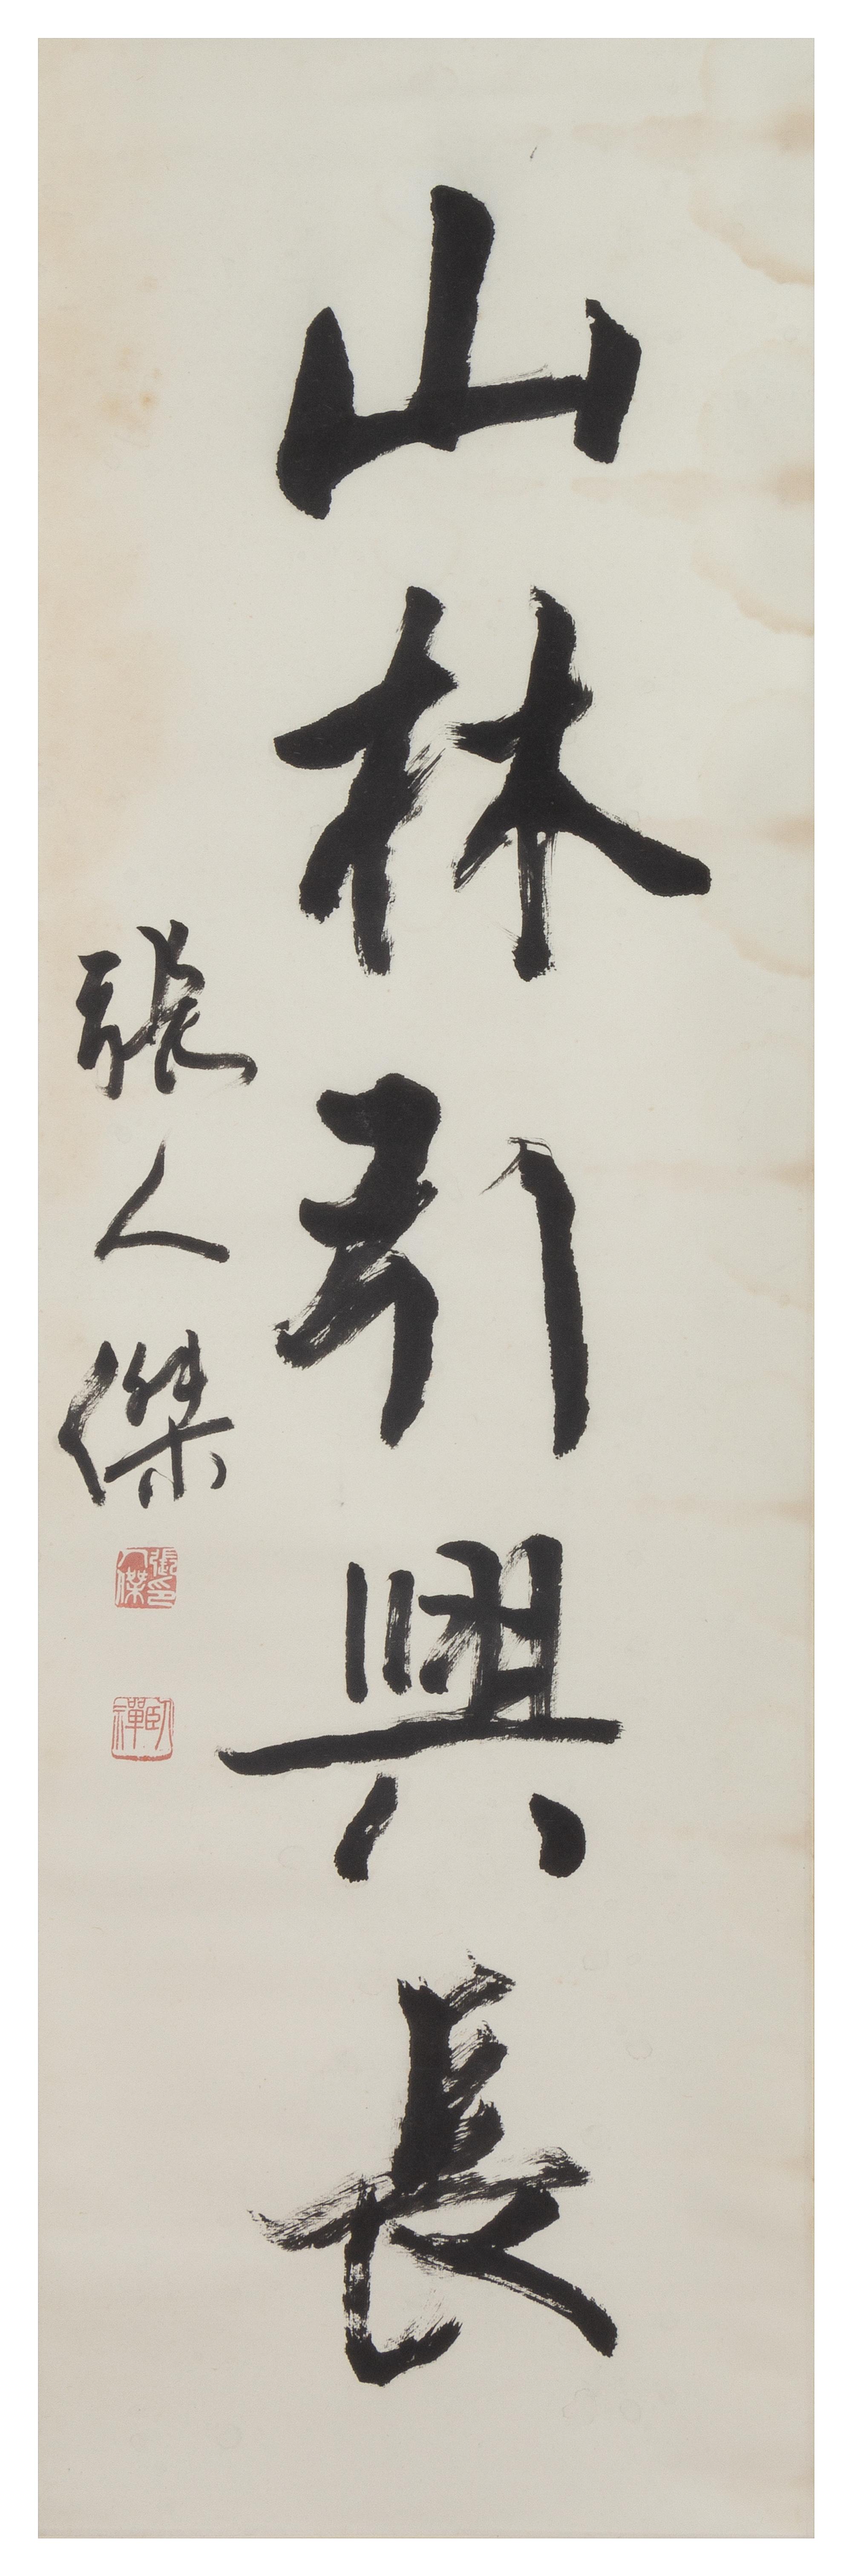 山林引興長
張人傑
張人傑印
臥禪